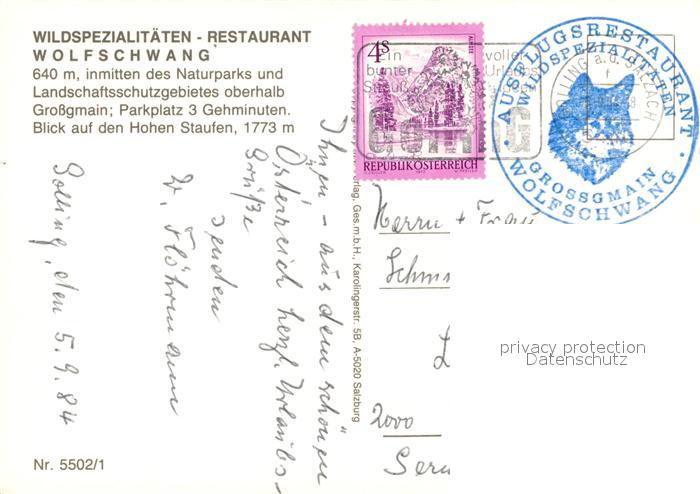 WILDSPEZIALITÄTEN - RESTAURANT
WOLFSCHWANG
640 m, inmitten des Naturparks und
Landschaftsschutzgebietes oberhalb
Großgmain; Parkplatz 3 Gehminuten.
Blick auf den Hohen Staufen, 1773 m
Golling, den 5.9.84
Ihnen - aus dem schönen
Österreich herzl. Urlaubs-
Grüße
senden
Nr. 5502/1
Verlag, Ges.m.b.H., Karolingerstr. 5B, A-5020 Salzburg
4S
ALMSEE
REPUBLIK ÖSTERREICH
Ein
bunter
voller
GOLLING a.d. SALZACH
· AUSFLUGSRESTAURANT ·
WILDSPEZIALITÄTEN
GROSSGMAIN
WOLFSCHWANG
Herrn + Frau
Schm
2000
privacy protection
Datenschutz